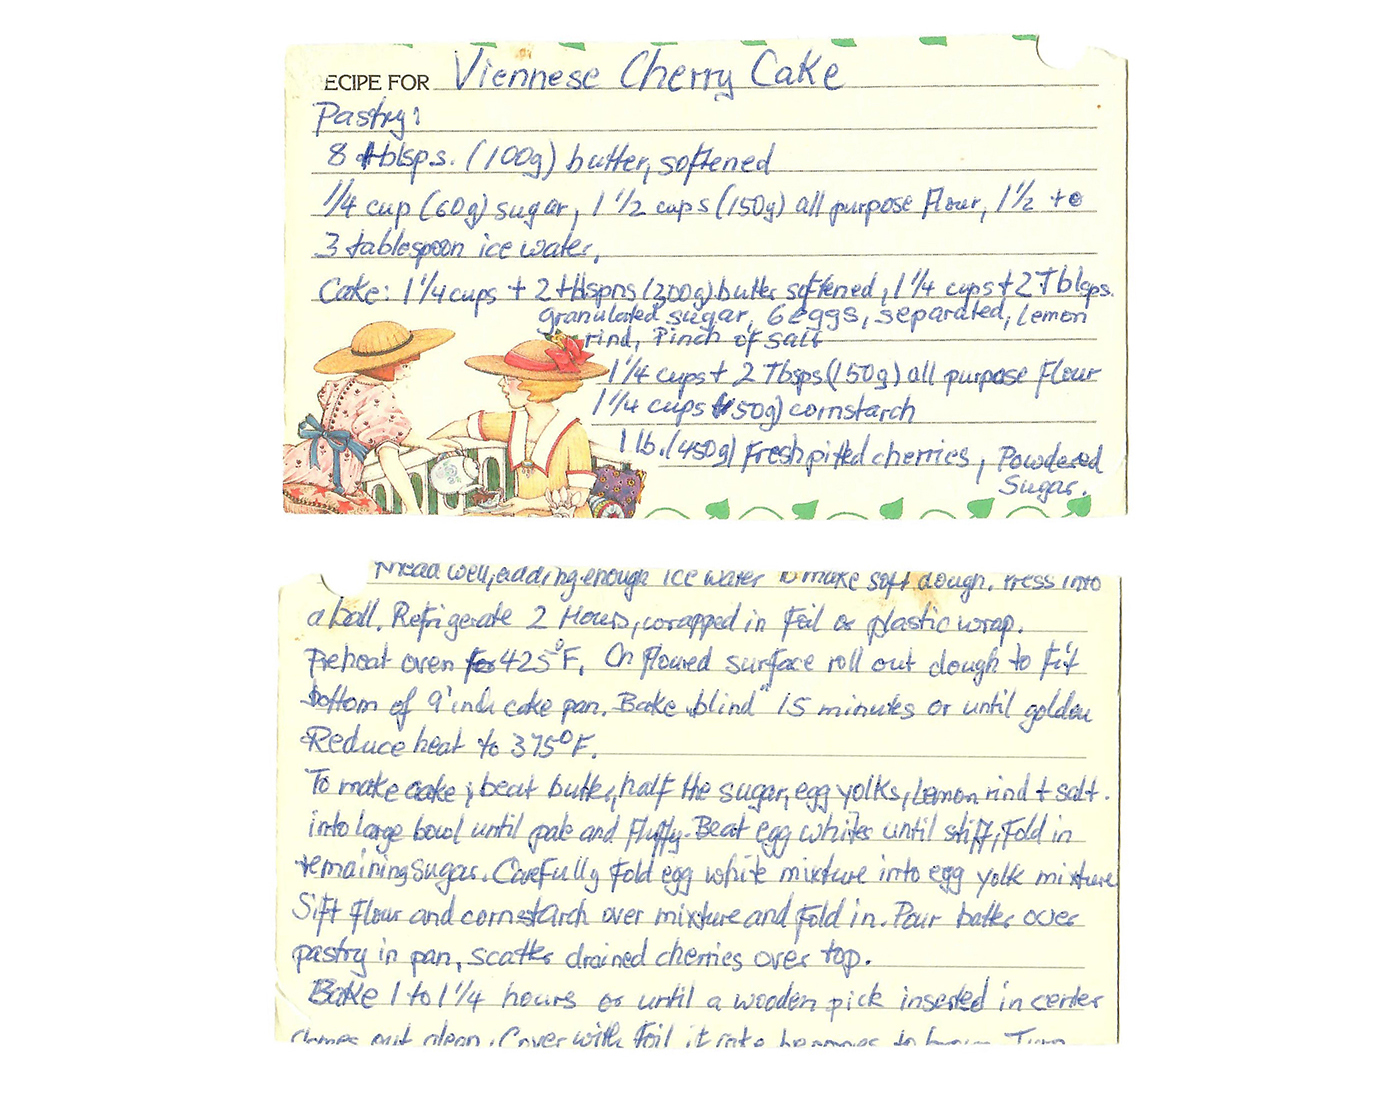 ECIPE FOR Viennese Cherry Cake
Pastry:
8 tblsps. (100g) butter, softened
1/4 cup (60g) sugar, 1 1/2 cups (150g) all purpose flour, 1 1/2 to
3 tablespoon ice water,
Cake: 1 1/4 cups + 2 tblspns (300g) butter softened, 1 1/4 cups + 2 Tblsps.
granulated sugar, 6 eggs, separated, lemon
rind, Pinch of salt
1 1/4 cups + 2 Tbsps (150g) all purpose flour
1 1/4 cups (150g) cornstarch
1 lb. (450g) Fresh pitted cherries, Powdered
Sugar.
Knead well, adding enough ice water to make soft dough. Press into
a ball. Refrigerate 2 Hours, wrapped in foil or plastic wrap.
Preheat oven 425°F. On floured surface roll out dough to fit
bottom of 9 inch cake pan. Bake „blind" 15 minutes or until golden
Reduce heat to 375°F.
To make cake; beat butter, half the sugar, egg yolks, Lemon rind + salt.
into large bowl until pale and fluffy. Beat egg whites until stiff, Fold in
remaining sugar. Carefully fold egg white mixture into egg yolk mixture
Sift flour and cornstarch over mixture and fold in. Pour batter over
pastry in pan, scatter drained cherries over top.
Bake 1 to 1 1/4 hours or until a wooden pick inserted in center
comes out clean. Cover with foil if cake becomes to brown. Turn